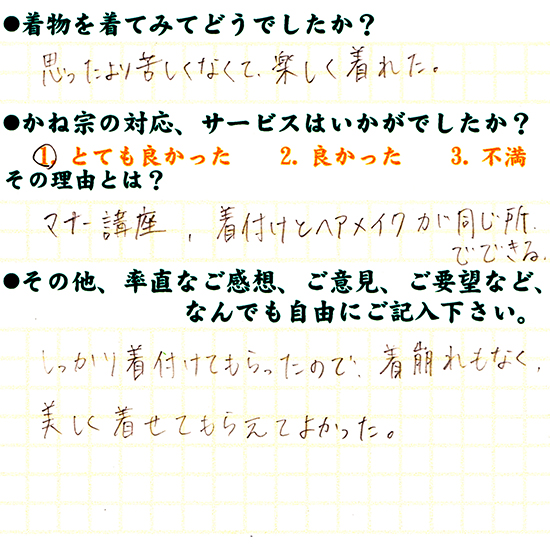 ●着物を着てみてどうでしたか？
思ったより苦しくなくて、楽しく着れた。
●かね宗の対応、サービスはいかがでしたか？
1. とても良かった 2. 良かった 3. 不満
その理由とは？
マナー講座、着付けとヘアメイクが同じ所
でできる。
●その他、率直なご感想、ご意見、ご要望など、
なんでも自由にご記入下さい。
しっかり着付けてもらったので、着崩れもなく、
美しく着せてもらえてよかった。